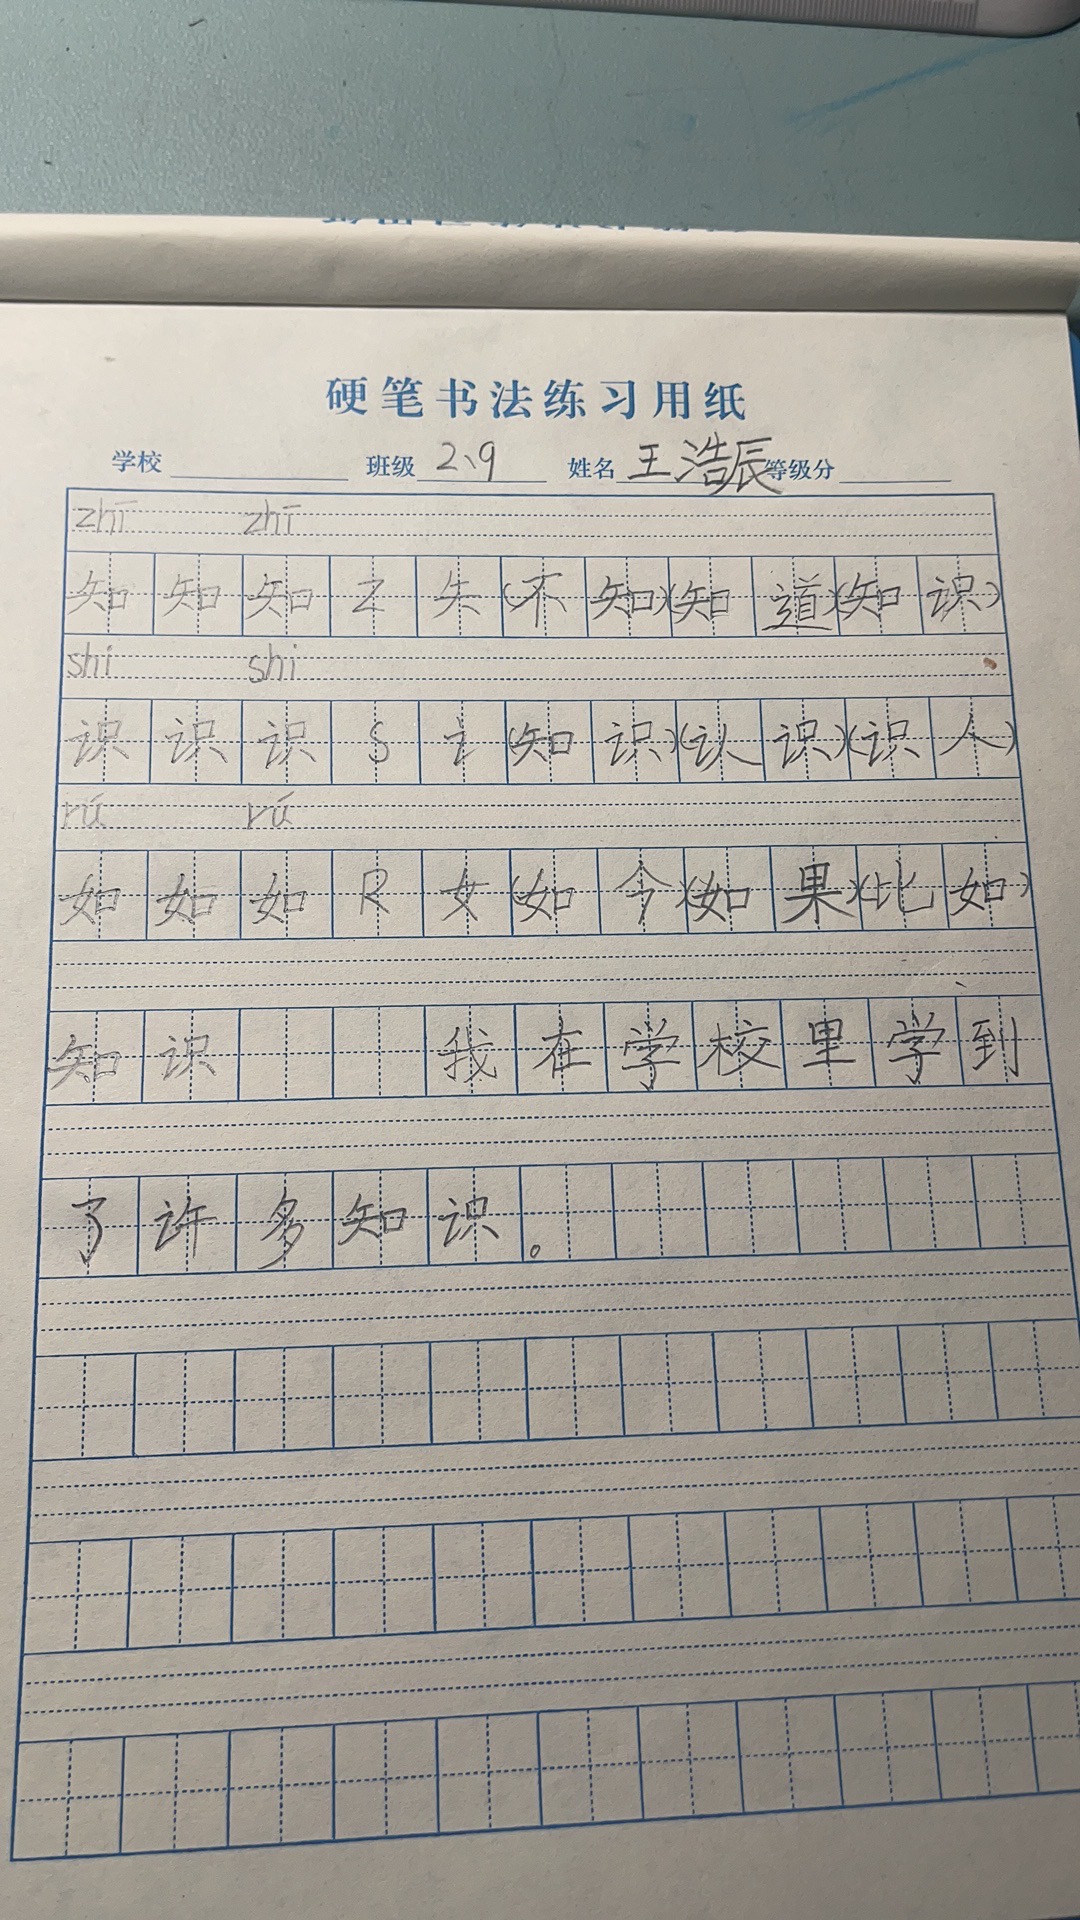 硬笔书法练习用纸
学校 班级 2、9 姓名 王浩辰 等级分
zhī zhī
知 知 知 Z 矢 (不 知)(知 道)(知 识)
shi shi
识 识 识 S 讠 (知 识)(认 识)(识 人)
rú rú
如 如 如 R 女 (如 今)(如 果)(比 如)
知 识 我 在 学 校 里 学 到
了 许 多 知 识 。